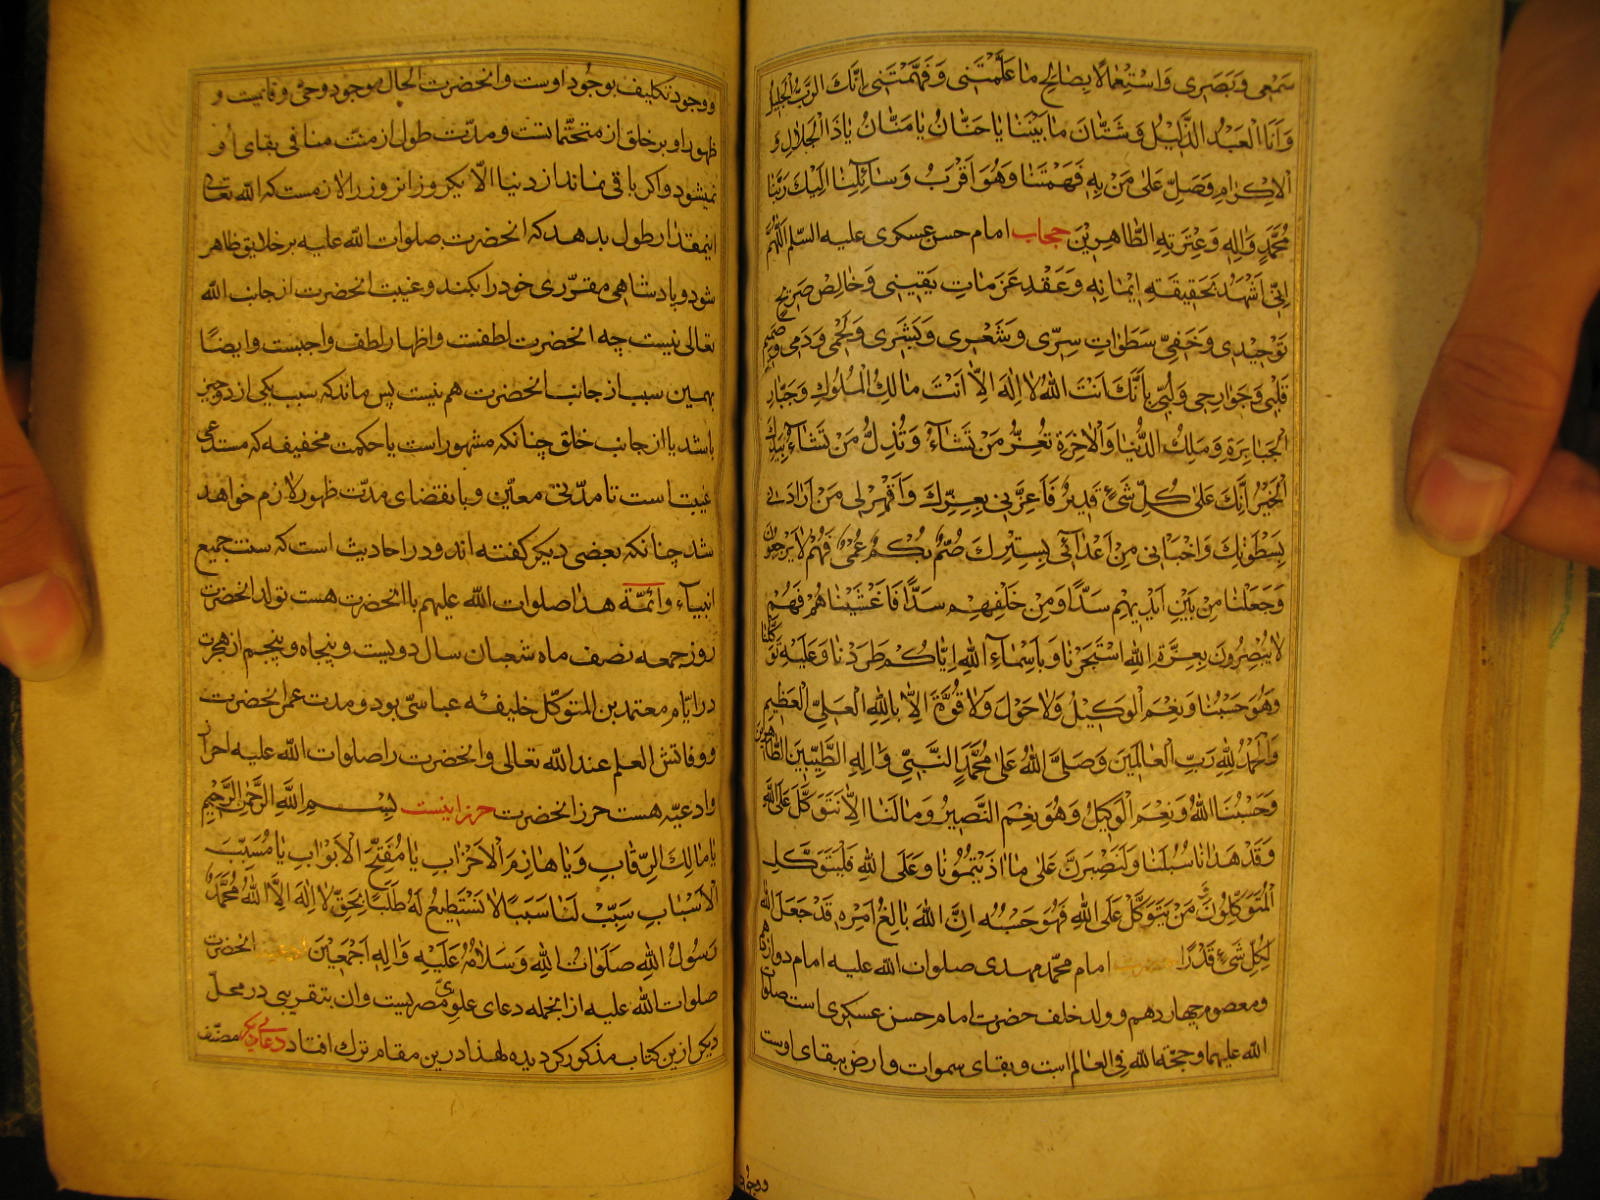 سَمْعى وَبَصَرى وَاسْتِعْمالًا بِصٰالِحِ مٰا عَلَّمْتَنى وَفَهَّمْتَنى اِنَّكَ الرَّبُّ الْجَليلُ
وَاَنَا الْعَبْدُ الذَّليلُ وَشَتّٰانَ مٰا بَيْنَنٰا يٰا حَنّٰانُ يٰا مَنّٰانُ يٰا ذَا الْجَلالِ وَ
الْاِكْرٰامِ وَصَلِّ عَلٰى مَنْ بِهِ فَهَّمْتَنٰا وَهُوَ اَقْرَبُ وَسٰائِلِنٰا اِلَيْكَ رَبَّنٰا
مُحَمَّدٍ وَاٰلِهِ وَعِتْرَتِهِ الطّٰاهِرِيْنَ حجاب امام حسن عسكرى عليه السّلم اَللّٰهُمَّ
اِنّى اَشْهَدُ بِحَقيقَةِ ايمٰانِهِ وَعَقْدِ عَزَمٰاتِ يَقينى وَخٰالِصِ صَريحِ
تَوْحيدى وَخَفِىِّ سَطَوٰاتِ سِرّى وَشَعْرى وَبَشَرى وَلَحْمى وَدَمى وَصَميمِ
قَلْبى وَجَوٰارِحى وَلُبّى بِاَنَّكَ اَنْتَ اللهُ لٰا اِلٰهَ اِلّٰا اَنْتَ مٰالِكُ الْمُلُوكِ وَجَبّٰارُ
الْجَبٰابِرَةِ وَمَلِكُ الدُّنْيٰا وَالْاٰخِرَةِ تُعِزُّ مَنْ تَشٰآءُ وَتُذِلُّ مَنْ تَشٰآءُ بِيَدِكَ
الْخَيْرُ اِنَّكَ عَلٰى كُلِّ شَىْءٍ قَديرٌ فَاَعِزَّنى بِعِزِّكَ وَاَقْهِرْ لى مَنْ اَرٰادَنى
بِسَطْوَتِكَ وَاخْبَانى مِنْ اَعْدٰآئى بِسِتْرِكَ صُمٌّ بُكْمٌ عُمْىٌ فَهُمْ لٰا يَرْجِعُونَ
وَجَعَلْنٰا مِنْ بَيْنِ اَيْديهِمْ سَدًّا وَمِنْ خَلْفِهِمْ سَدًّا فَاَغْشَيْنٰاهُمْ فَهُمْ
لٰا يُبْصِرُونَ بِعِزَّةِ اللهِ اسْتَجَرْنٰا وَبِاَسْمٰآءِ اللهِ اِيّٰاكُمْ طَرَدْنٰا وَعَلَيْهِ تَوَكَّلْنٰا
وَهُوَ حَسْبُنٰا وَنِعْمَ الْوَكيلُ وَلٰا حَوْلَ وَلٰا قُوَّةَ اِلّٰا بِاللهِ الْعَلِىِّ الْعَظيمِ
وَالْحَمْدُ لِلّٰهِ رَبِّ الْعٰالَمينَ وَصَلَّى اللهُ عَلٰى مُحَمَّدٍ النَّبِىِّ وَاٰلِهِ الطَّيِّبينَ الطّٰاهِرينَ
وَحَسْبُنَا اللهُ وَنِعْمَ الْوَكيلُ وَهُوَ نِعْمَ النَّصيرُ وَمٰا لَنٰا اَلّٰا نَتَوَكَّلَ عَلَى اللهِ
وَقَدْ هَدٰانٰا سُبُلَنٰا وَلَنَصْبِرَنَّ عَلٰى مٰا اٰذَيْتُمُونٰا وَعَلَى اللهِ فَلْيَتَوَكَّلِ
الْمُتَوَكِّلُونَ مَنْ يَتَوَكَّلْ عَلَى اللهِ فَهُوَ حَسْبُهُ اِنَّ اللهَ بٰالِغُ اَمْرِهِ قَدْ جَعَلَ اللهُ
لِكُلِّ شَىْءٍ قَدْرًا امام محمّد مهدى صلوات الله عليه امام دوازدهم
ومعصوم چهاردهم وولد خلف حضرت امام حسن عسكرى است صلوات
الله عليهما وحجّة الله فى العالم است وبقاى سموات وارض ببقاى اوست
ووجود تكليف بوجود اوست وآنحضرت الحال موجود وحىّ وقائمست و
ظهور او بر خلق از متحتّماتست ومدّت طول ازمنت منافى بقاى او
نميشود واكر باقى نماند از دنيا الّا يكروز از روزها لازمست كه الله تعالى
اينمقدار طول بدهد كه آنحضرت صلوات الله عليه بر خلايق ظاهر
شود وپادشاهى مقرّرى خود را بكند وغيبت آنحضرت از جانب الله
تعالى نيست چه آنحضرت لطفست واظهار لطف واجبست وايضًا
بهمين سبب از جانب آنحضرت هم نيست پس ماند كه سبب يكى از دو چيز
باشد يا از جانب خلق چنانكه مشهور است يا حكمت مخفيفه كه مستدعى
غيبت است تا مدّتى معيّن وبانقضاى مدّت ظهور لازم خواهد
شد چنانكه بعضى ديكر كفته اند ودر احاديث است كه سنت جميع
انبيآء وائمّة هدا صلوات الله عليهم با آنحضرت هست تولد آنحضرت
روز جمعه نصف ماه شعبان سال دويست وپنجاه وپنجم از هجرت
در ايّام معتمد بن المتوكّل خليفهٔ عباسّى بود ومدت عمر آنحضرت
ووفاتش العلم عند الله تعالى وآنحضرت را صلوات الله عليه احراز
وادعيّه هست حرز آنحضرت حرز اينست بِسْمِ اللهِ الرَّحْمٰنِ الرَّحيمِ
يٰا مٰالِكَ الرِّقٰابِ وَيٰا هٰازِمَ الْاَحْزٰابِ يٰا مُفَتِّحَ الْاَبْوٰابِ يٰا مُسَبِّبَ
الْاَسْبٰابِ سَبِّبْ لَنٰا سَبَبًا لٰا نَسْتَطيعُ لَهُ طَلَبًا بِحَقِّ لٰا اِلٰهَ اِلَّا اللهُ مُحَمَّدٌ
رَسُولُ اللهِ صَلَوٰاتُ اللهِ وَسَلٰامُهُ عَلَيْهِ وَاٰلِهِ اَجْمَعينَ آنحضرت
صلوات الله عليه از آنجمله دعاى علوىّ مصريست وآن بتقريبى در محلّ
ديكر ازين كتاب مذكور كرديده لهذا درين مقام ترك افتاد دعاى ديكر مصنّف
ووجود